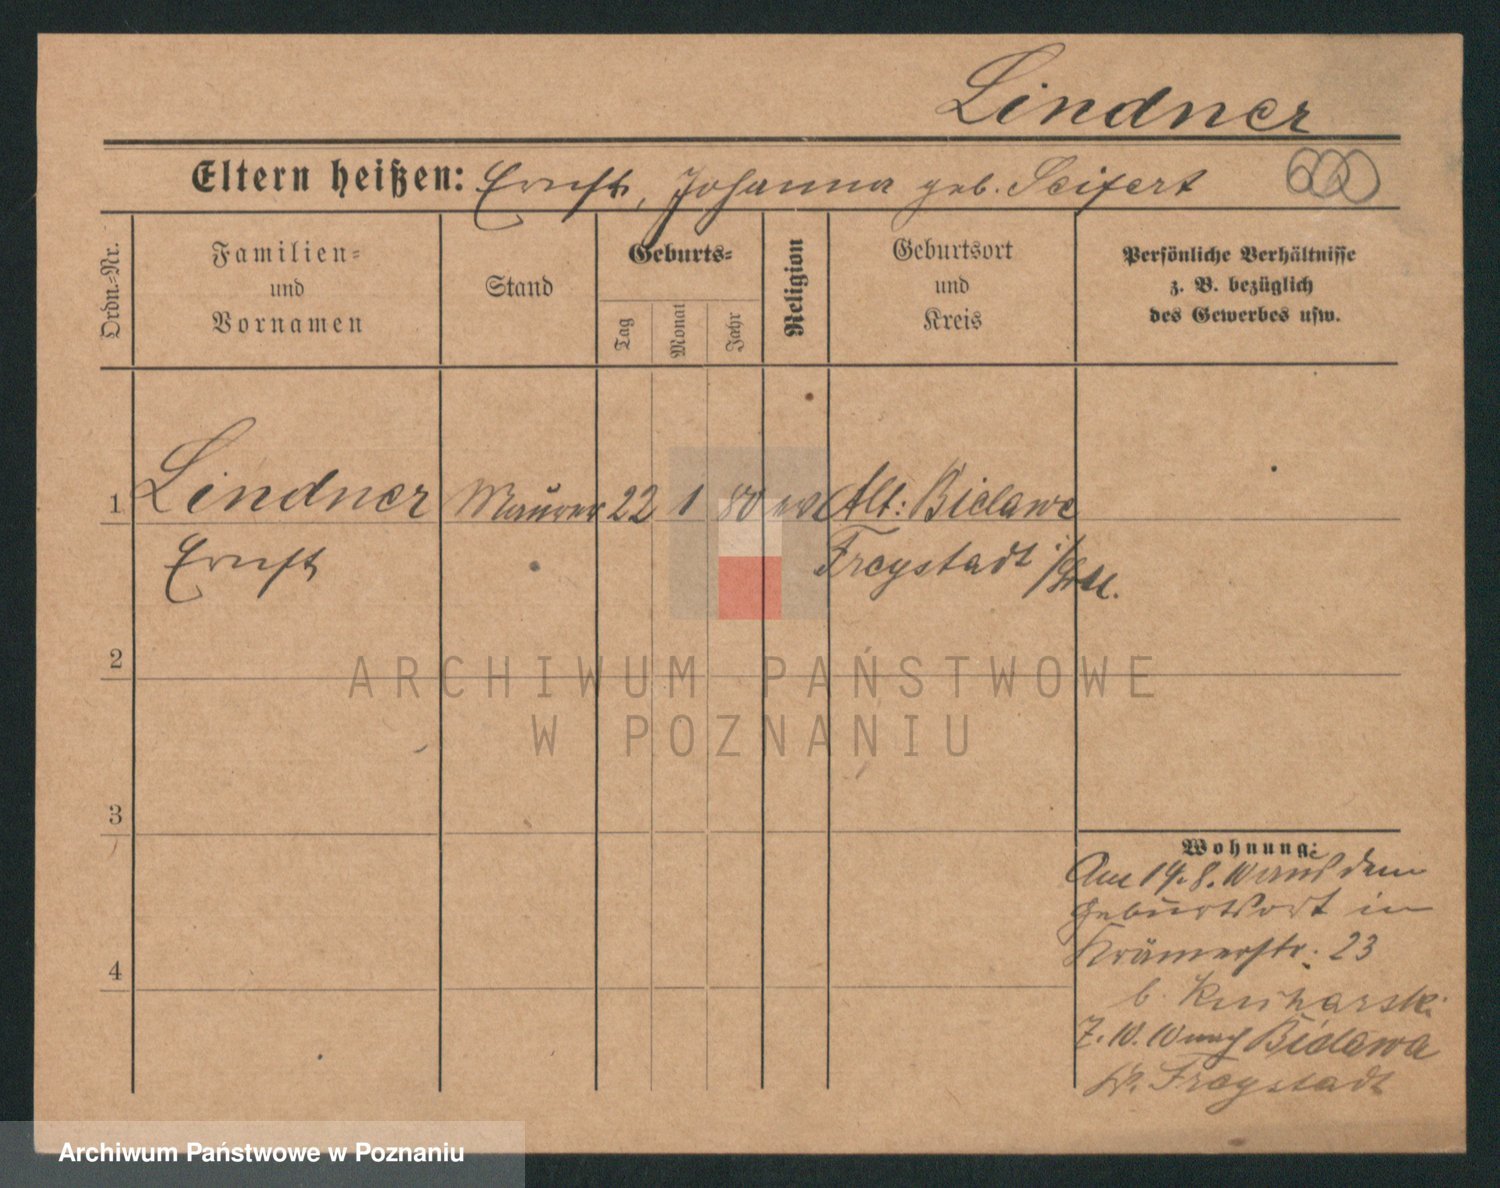 Lindner
Eltern heißen: Ernst, Johanna geb. Seifert
Ordn.=Nr.
Familien=
und
Vornamen
Stand
Geburts=
Tag
Monat
Jahr
Religion
Geburtsort
und
Kreis
Persönliche Verhältnisse
z. B. bezüglich
des Gewerbes usw.
1 Lindner Maurer 22 1 80 ev Alt: Bielawe
Ernst Freystadt
2
3
4
Wohnung:
Am 19.8.10 aus dem
Geburtsort in
Krämerstr. 23
b. Kucharski
7.10.10 nach Bielawa
Kr. Freystadt
ARCHIWUM PAŃSTWOWE
W POZNANIU
Archiwum Państwowe w Poznaniu